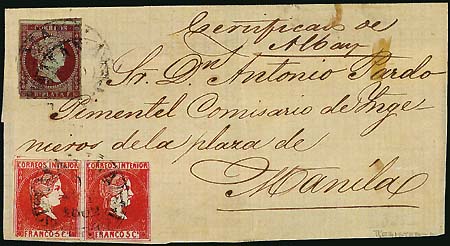 Certificado de
Albay
Sr. Dn Antonio Pardo
Pimentel Comisario de Inge
nieros de la plaza de
Manila
CORREOS
CORREOS INTERIOR
CORREOS INTERIOR
FRANCO 5 Cs
FRANCO 5 Cs